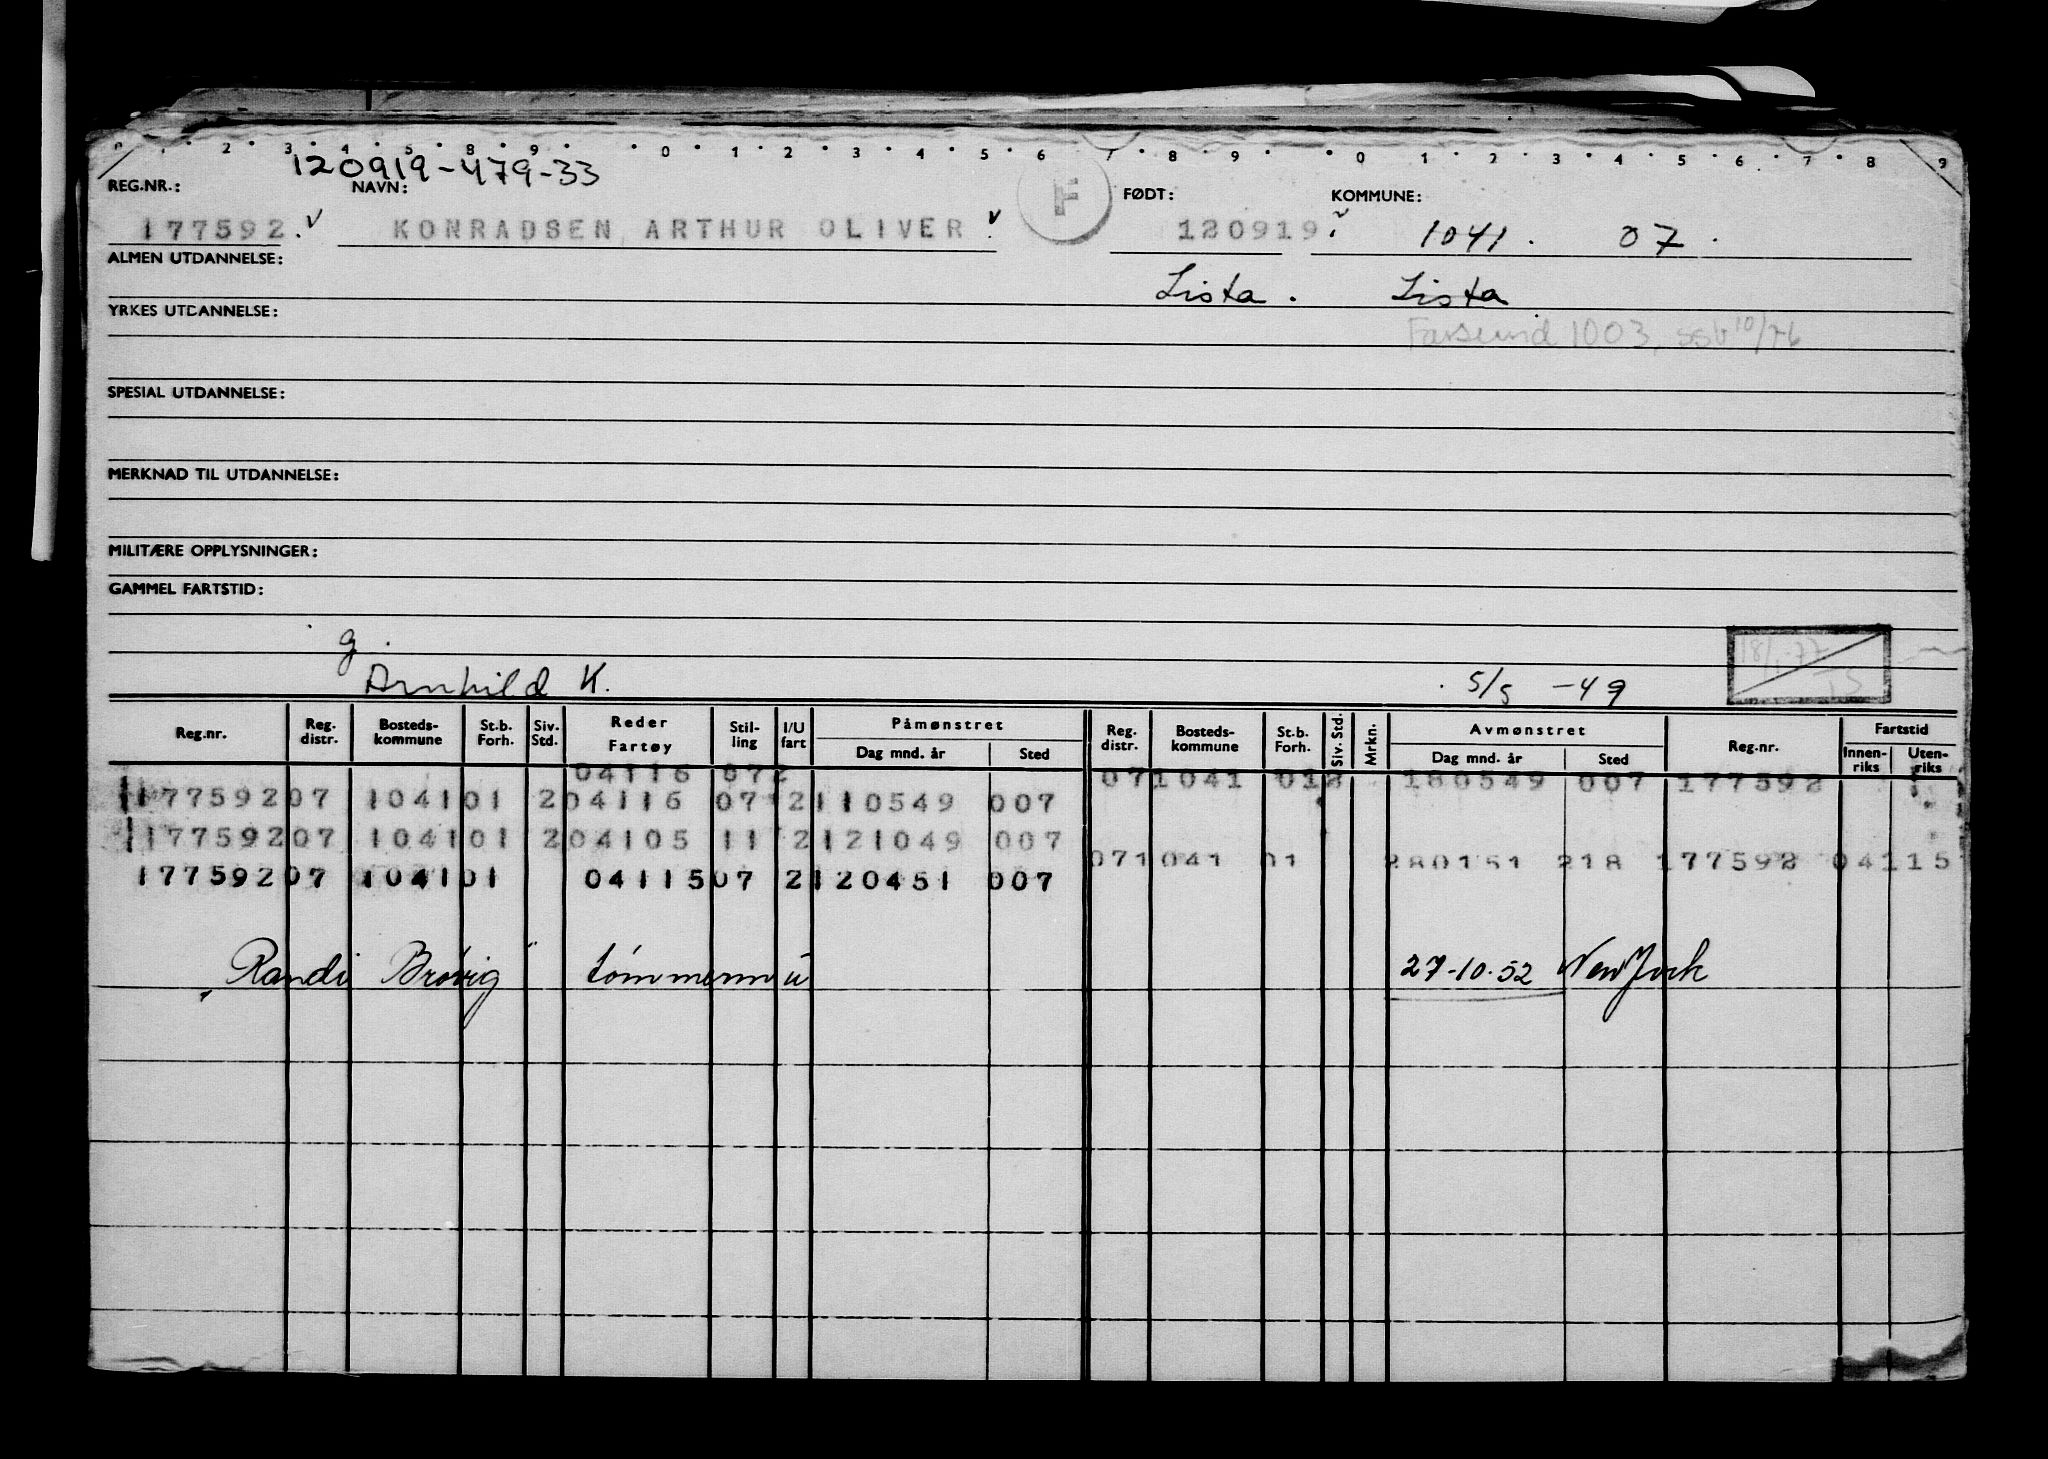 0 . 1 . 2 . 3 . 4 . 5 . 8 . 9 . . 0 . 1 . 2 . 3 . 4 . 5 . 6 . 7 . 8 . 9 . . 0 . 1 . 2 . 3 . 4 . 5 . 6 . 7 . 8 . 9
120919-479-33
REG.NR.: NAVN: F FØDT: KOMMUNE:
177592. v KONRADSEN, ARTHUR OLIVER. v 120919. v 1041. 07.
ALMEN UTDANNELSE:
Lista. Lista
YRKES UTDANNELSE:
Farsund 1003, ssb 10/76
SPESIAL UTDANNELSE:
MERKNAD TIL UTDANNELSE:
MILITÆRE OPPLYSNINGER:
GAMMEL FARTSTID:
g.
18/1-77
Arnhild K. 5/5 -49 TS
Reg.nr. Reg. distr. Bosteds-kommune St.b. Forh. Siv. Std. Reder Fartøy Stil-ling I/U fart Påmønstret Dag mnd. år Sted Reg. distr. Bosteds-kommune St.b. Forh. Siv. Std. Mrkn. Avmønstret Dag mnd. år Sted Reg.nr. Fartstid Innen-riks Uten-riks
04116 072 071041 012 180549 007 177592
177592 07 1041 01 2 04116 07 2 110549 007
177592 07 1041 01 2 04105 11 2 121049 007
071041 01 280151 218 177592 041151
177592 07 1041 01 04115 07 2 120451 007
"Randi Brøvig" tømmerm u 27-10-52 New York